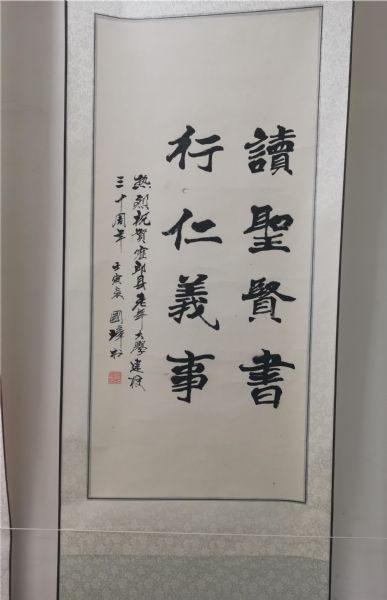 讀聖賢書
行仁義事
熱烈祝賀霍邱縣老年大學建校
三十周年 壬寅年 國璋书